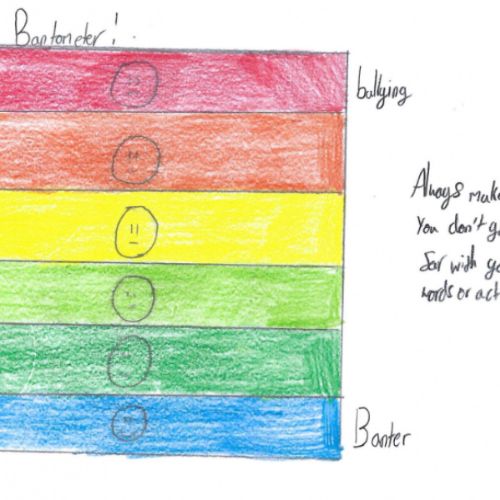 Bantometer!
bullying
Always make
You don't
far with
words or act
Banter